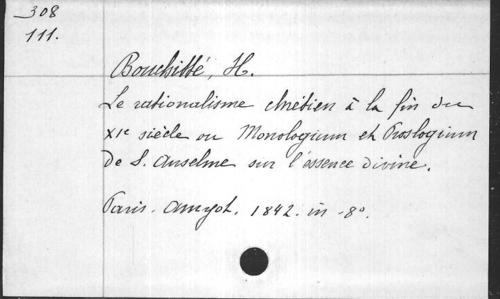 308
111.
Bouchitté, H.
Le rationalisme chrétien à la fin du
XIe siècle ou Monologium et Proslogium
de S. Anselme sur l'essence divine.
Paris. Amyot. 1842. in-8º.